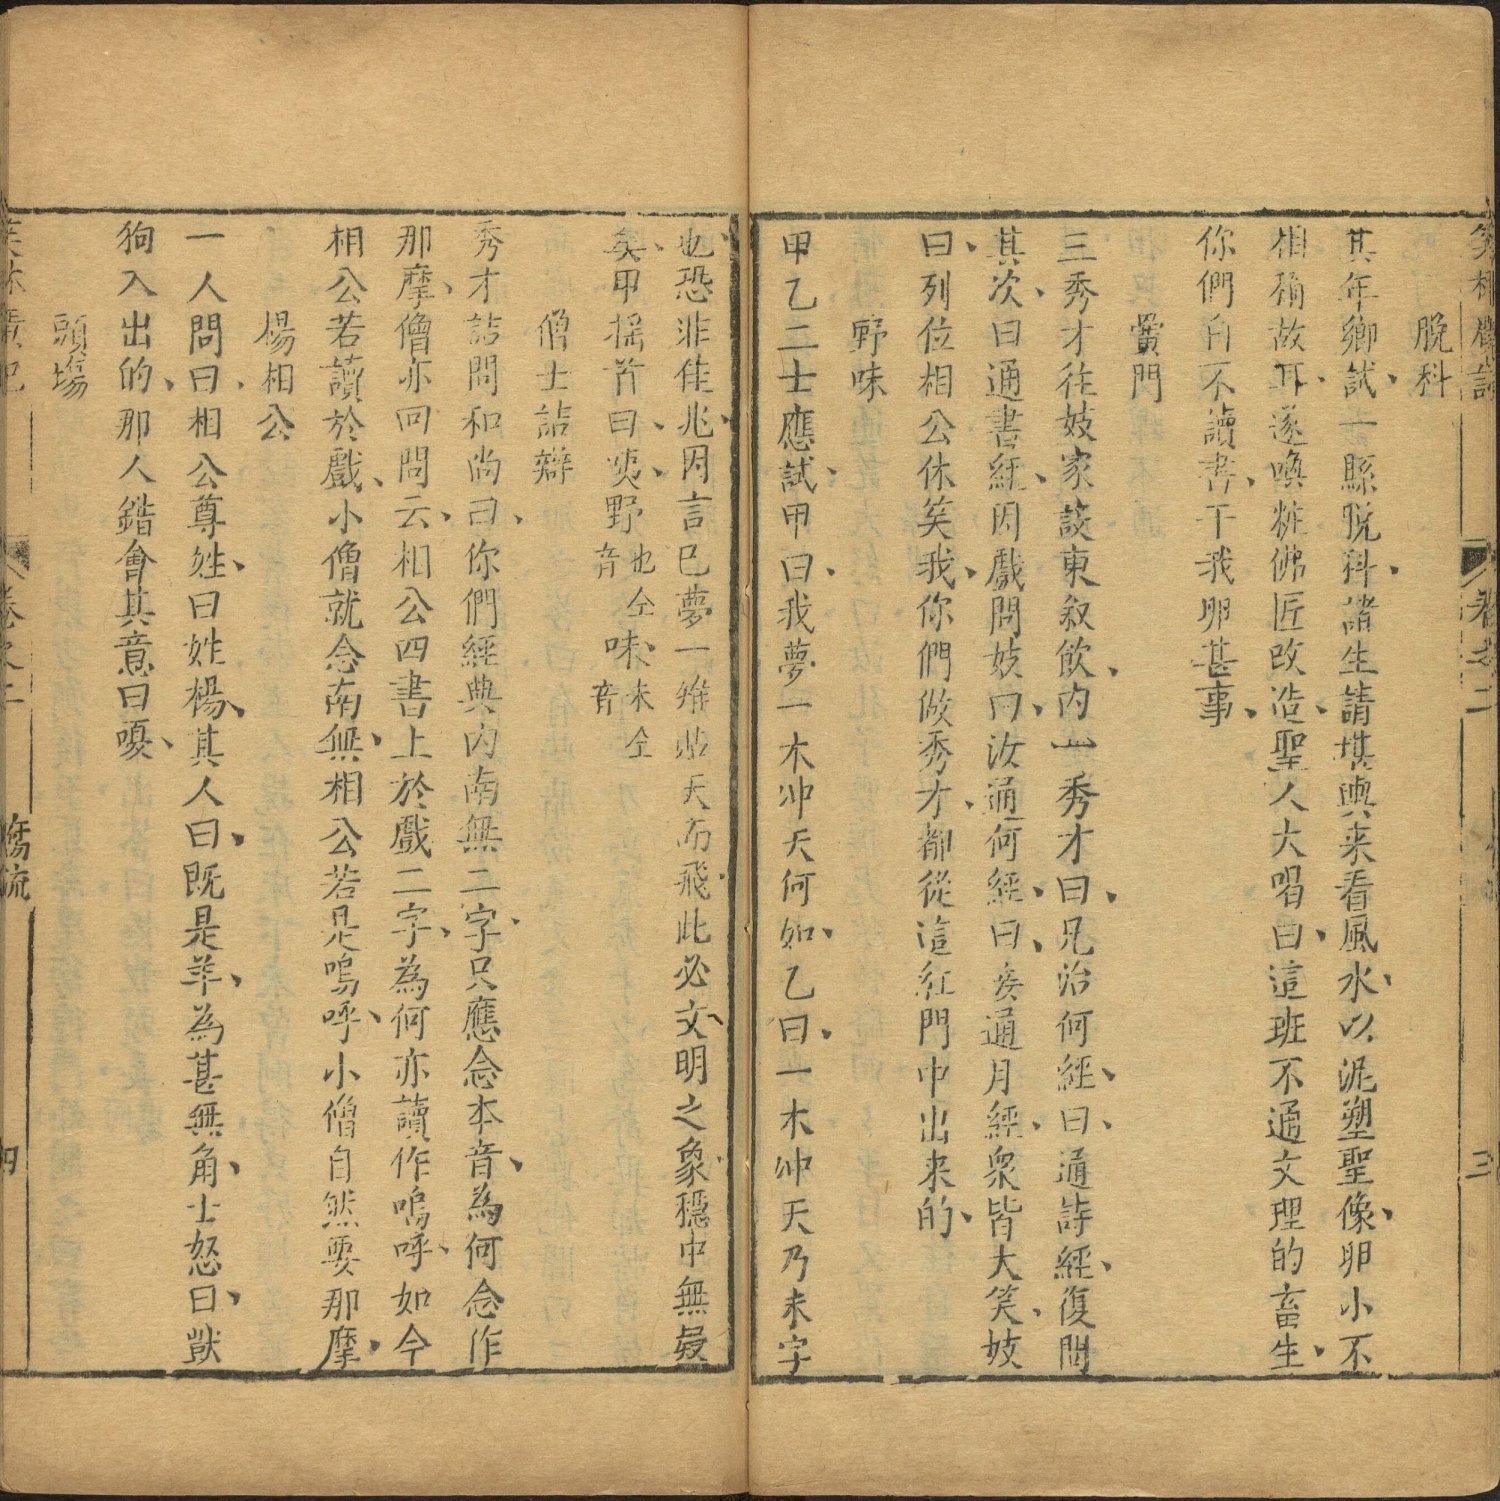 脫科
其年鄉試一縣脫科諸生請堪輿来看風水以泥塑聖像卵小不
相稱故耳遂喚粧佛匠改造聖人大唱曰這班不通文理的畜生
你們自不讀書干我卵甚事
黌門
三秀才往妓家談東叙飲内一秀才曰兄治何經曰通詩經復問
其次曰通書經因戲問妓曰汝通何經曰妾通月經衆皆大笑妓
曰列位相公休笑我你們做秀才都從這紅門中出来的
野味
甲乙二士應試甲曰我夢一木冲天何如乙曰一木冲天乃未字
也恐非佳兆因言已夢一雉貼天而飛此必文明之象穩中無疑
矣甲揺首曰噗野也仝音味未仝音
僧士詰辯
秀才詰問和尚曰你們經典内南無二字只應念本音為何念作
那摩僧亦回問云相公四書上於戲二字為何亦讀作嗚呼如今
相公若讀於戲小僧就念南無相公若是嗚呼小僧自然要那摩
楊相公
一人問曰相公尊姓曰姓楊其人曰既是羊為甚無角士怒曰獃
狗入出的那人錯會其意曰嗄
頭塲
卷之二
腐流
四